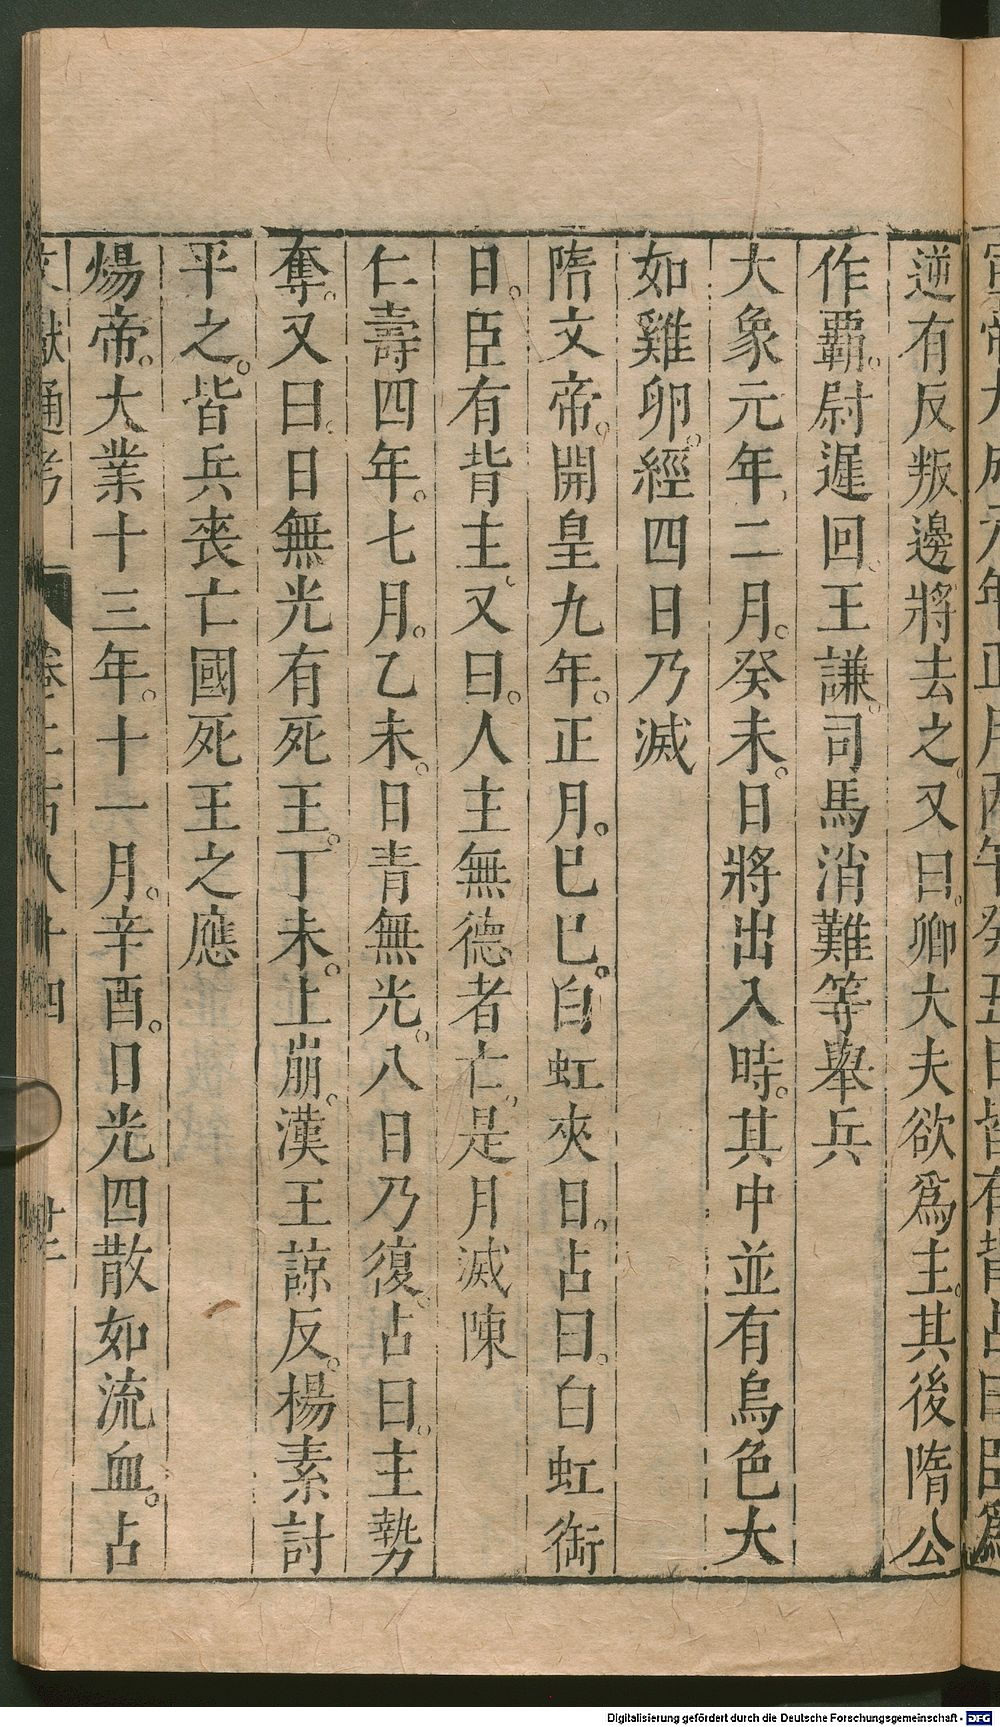 逆有反叛邊將去之又曰卿大夫欲爲主其後隋公
作覇尉遲回王謙司馬消難等舉兵
大象元年二月癸未日將出入時其中並有烏色大
如雞卵經四日乃滅
隋文帝開皇九年正月巳巳白虹夾日占曰白虹衘
日臣有背主又曰人主無德者亡是月滅陳
仁壽四年七月乙未日青無光八日乃復占曰主勢
奪又曰日無光有死王丁未上崩漢王諒反楊素討
平之皆兵喪亡國死王之應
煬帝大業十三年十一月辛酉日光四散如流血占
文獻通考 卷二百八十四
Digitalisierung gefördert durch die Deutsche Forschungsgemeinschaft - DFG